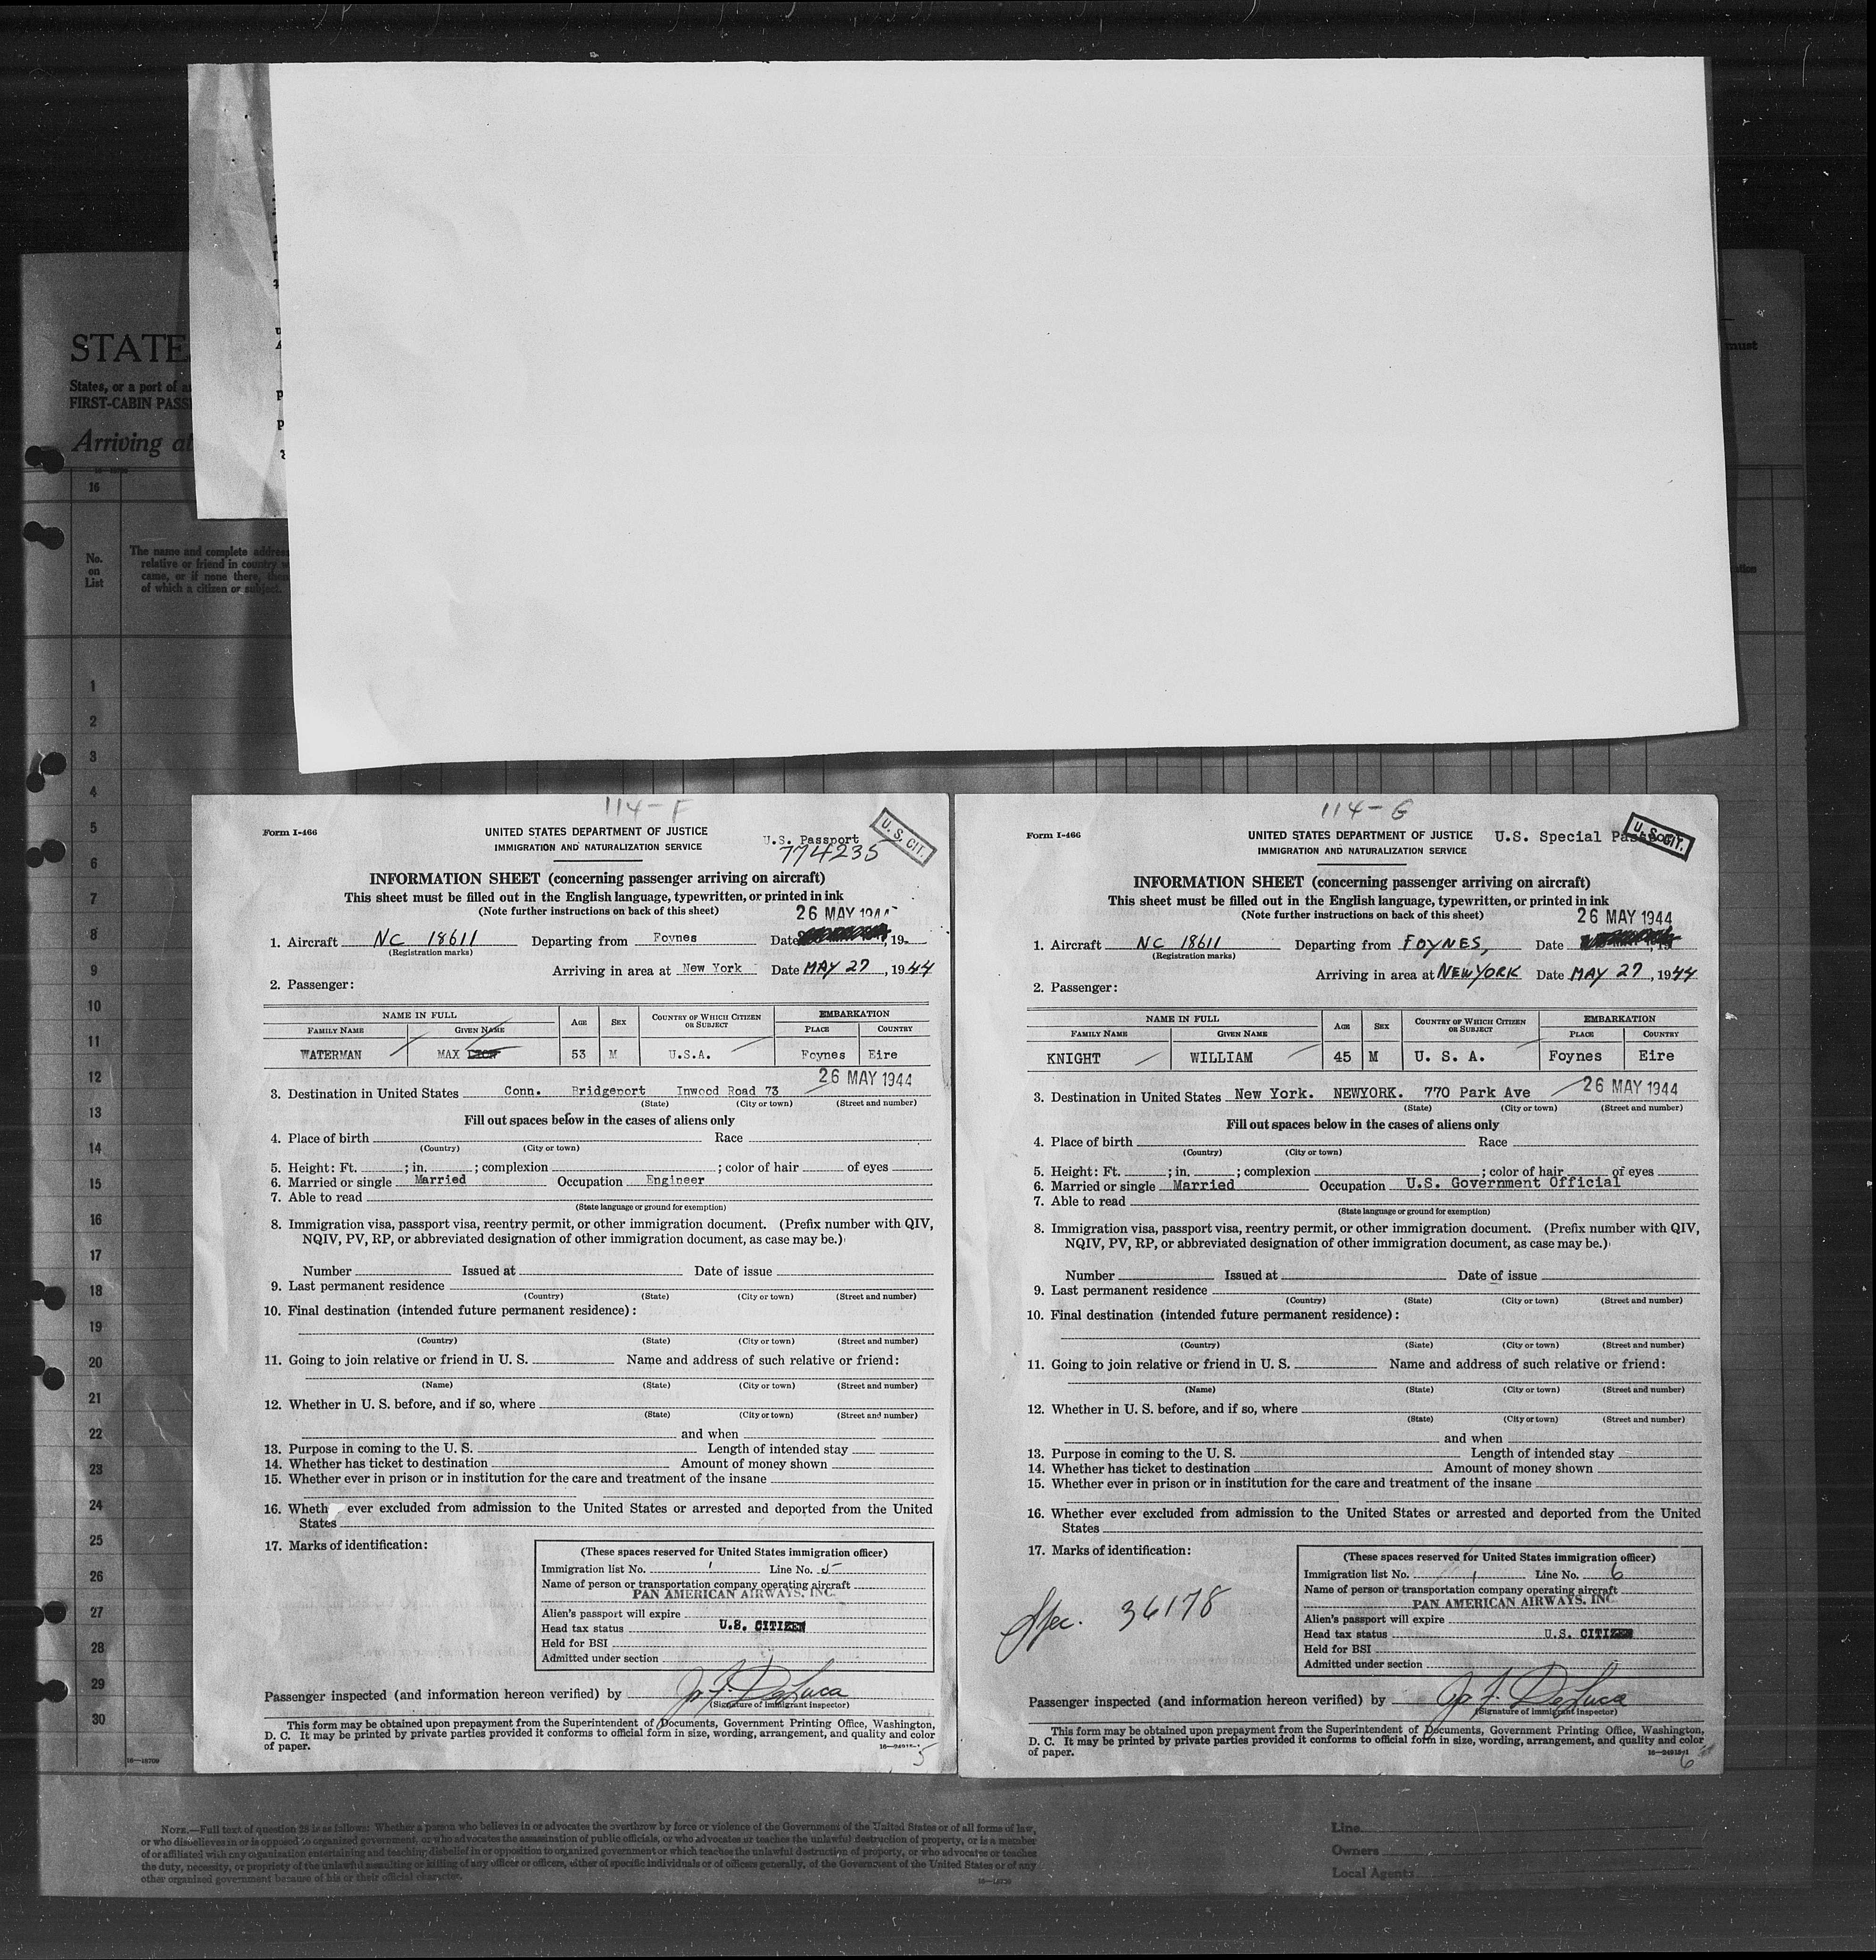 STATE
States, or a port of
FIRST-CABIN PASS
Arriving at
must
16
No.
on
List
The name and complete address
relative or friend in country
came, or if none there, then
of which a citizen or subject.
1
2
3
4
5
6
7
8
9
10
11
12
13
14
15
16
17
18
19
20
21
22
23
24
25
26
27
28
29
30
16—18709
114-F
Form I-466
UNITED STATES DEPARTMENT OF JUSTICE
IMMIGRATION AND NATURALIZATION SERVICE
U.S. Passport
774235
U.S. CIT.
INFORMATION SHEET (concerning passenger arriving on aircraft)
This sheet must be filled out in the English language, typewritten, or printed in ink
(Note further instructions on back of this sheet)
26 MAY 1944
1. Aircraft NC 18611 Departing from Foynes Date , 19
(Registration marks)
Arriving in area at New York Date MAY 27, 1944
2. Passenger:
NAME IN FULL AGE SEX COUNTRY OF WHICH CITIZEN OR SUBJECT EMBARKATION
FAMILY NAME GIVEN NAME PLACE COUNTRY
WATERMAN MAX 53 M U.S.A. Foynes Eire
26 MAY 1944
3. Destination in United States Conn. Bridgeport Inwood Road 73
(State) (City or town) (Street and number)
Fill out spaces below in the cases of aliens only
4. Place of birth Race
(Country) (City or town)
5. Height: Ft. ; in. ; complexion ; color of hair of eyes
6. Married or single Married Occupation Engineer
7. Able to read
(State language or ground for exemption)
8. Immigration visa, passport visa, reentry permit, or other immigration document. (Prefix number with QIV,
NQIV, PV, RP, or abbreviated designation of other immigration document, as case may be.)
Number Issued at Date of issue
9. Last permanent residence
(Country) (State) (City or town) (Street and number)
10. Final destination (intended future permanent residence):
(Country) (State) (City or town) (Street and number)
11. Going to join relative or friend in U. S. Name and address of such relative or friend:
(Name) (State) (City or town) (Street and number)
12. Whether in U. S. before, and if so, where
(State) (City or town) (Street and number)
and when
13. Purpose in coming to the U. S. Length of intended stay
14. Whether has ticket to destination Amount of money shown
15. Whether ever in prison or in institution for the care and treatment of the insane
16. Wheth ever excluded from admission to the United States or arrested and deported from the United
States
17. Marks of identification:
(These spaces reserved for United States immigration officer)
Immigration list No. 1 Line No. 5
Name of person or transportation company operating aircraft
PAN AMERICAN AIRWAYS, INC.
Alien's passport will expire
Head tax status U.S. CITIZEN
Held for BSI
Admitted under section
Passenger inspected (and information hereon verified) by Jo F. DeLuca
(Signature of immigrant inspector)
This form may be obtained upon prepayment from the Superintendent of Documents, Government Printing Office, Washington,
D. C. It may be printed by private parties provided it conforms to official form in size, wording, arrangement, and quality and color
of paper.
5
114-G
Form I-466
UNITED STATES DEPARTMENT OF JUSTICE
IMMIGRATION AND NATURALIZATION SERVICE
U.S. Special Passport
U.S. CIT.
INFORMATION SHEET (concerning passenger arriving on aircraft)
This sheet must be filled out in the English language, typewritten, or printed in ink
(Note further instructions on back of this sheet)
26 MAY 1944
1. Aircraft NC 18611 Departing from FOYNES, Date , 19
(Registration marks)
Arriving in area at NEW YORK Date MAY 27, 1944
2. Passenger:
NAME IN FULL AGE SEX COUNTRY OF WHICH CITIZEN OR SUBJECT EMBARKATION
FAMILY NAME GIVEN NAME PLACE COUNTRY
KNIGHT WILLIAM 45 M U. S. A. Foynes Eire
26 MAY 1944
3. Destination in United States New York. NEWYORK. 770 Park Ave
(State) (City or town) (Street and number)
Fill out spaces below in the cases of aliens only
4. Place of birth Race
(Country) (City or town)
5. Height: Ft. ; in. ; complexion ; color of hair of eyes
6. Married or single Married Occupation U.S. Government Official
7. Able to read
(State language or ground for exemption)
8. Immigration visa, passport visa, reentry permit, or other immigration document. (Prefix number with QIV,
NQIV, PV, RP, or abbreviated designation of other immigration document, as case may be.)
Number Issued at Date of issue
9. Last permanent residence
(Country) (State) (City or town) (Street and number)
10. Final destination (intended future permanent residence):
(Country) (State) (City or town) (Street and number)
11. Going to join relative or friend in U. S. Name and address of such relative or friend:
(Name) (State) (City or town) (Street and number)
12. Whether in U. S. before, and if so, where
(State) (City or town) (Street and number)
and when
13. Purpose in coming to the U. S. Length of intended stay
14. Whether has ticket to destination Amount of money shown
15. Whether ever in prison or in institution for the care and treatment of the insane
16. Whether ever excluded from admission to the United States or arrested and deported from the United
States
17. Marks of identification:
Spec. 36178
(These spaces reserved for United States immigration officer)
Immigration list No. 1 Line No. 6
Name of person or transportation company operating aircraft
PAN AMERICAN AIRWAYS, INC
Alien's passport will expire
Head tax status U.S. CITIZEN
Held for BSI
Admitted under section
Passenger inspected (and information hereon verified) by Jo F. DeLuca
(Signature of immigrant inspector)
This form may be obtained upon prepayment from the Superintendent of Documents, Government Printing Office, Washington,
D. C. It may be printed by private parties provided it conforms to official form in size, wording, arrangement, and quality and color
of paper.
6
NOTE.—Full text of question 28 is as follows: Whether a person who believes in or advocates the overthrow by force or violence of the Government of the United States or of all forms of law,
or who disbelieves in or is opposed to organized government, or who advocates the assassination of public officials, or who advocates or teaches the unlawful destruction of property, or is a member
of or affiliated with any organization entertaining and teaching disbelief in or opposition to organized government or which teaches the unlawful destruction of property, or who advocates or teaches
the duty, necessity, or propriety of the unlawful assaulting or killing of any officer or officers, either of specific individuals or of officers generally, of the Government of the United States or of any
other organized government because of his or their official character.
Line
Owners
Local Agents